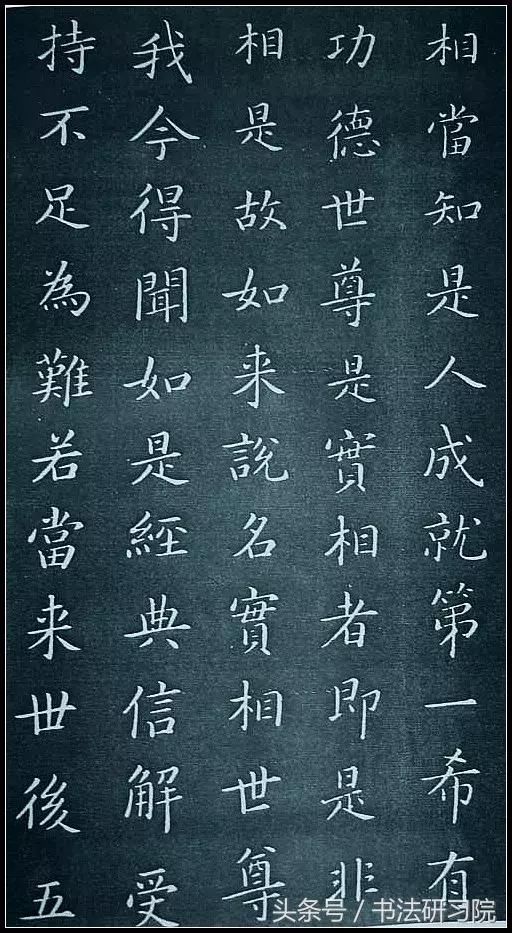 相當知是人成就第一希有
功德世尊是實相者即是非
相是故如来說名實相世尊
我今得聞如是經典信解受
持不足為難若當来世後五
头条号／书法研习院